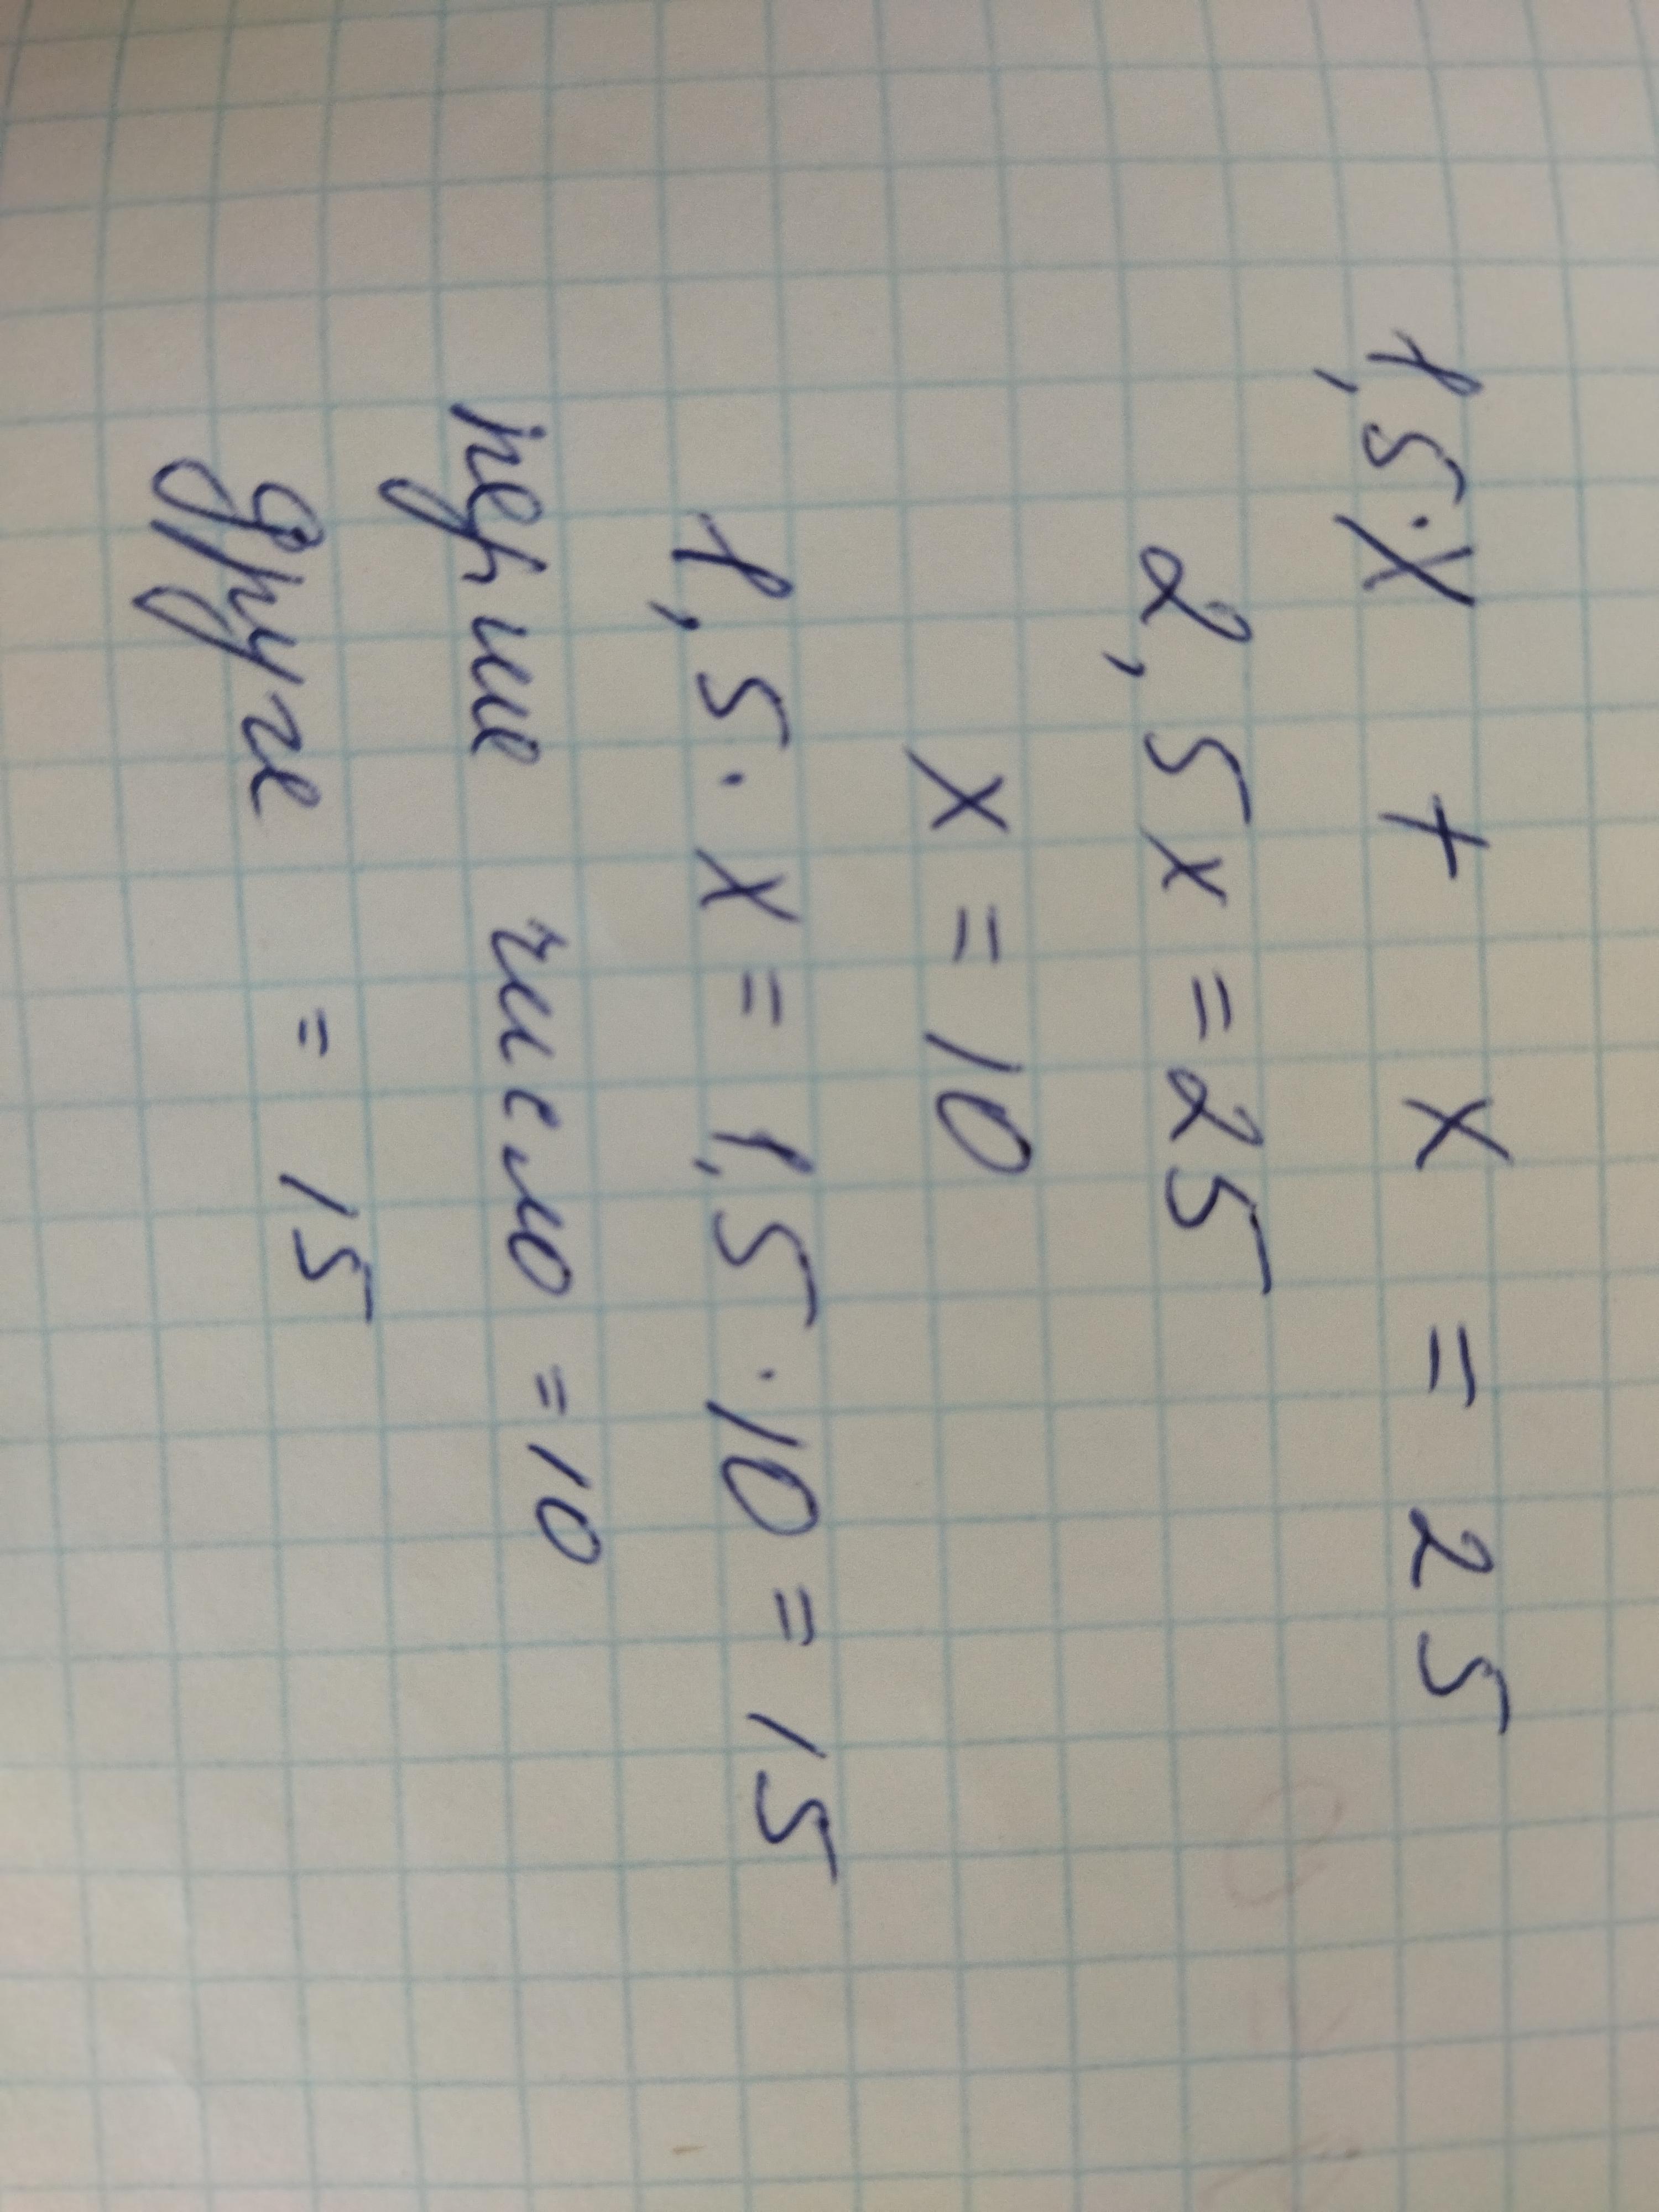 1,5·x + x = 25
2,5x = 25
x = 10
1,5·x = 1,5·10 = 15
перше число = 10
друге = 15